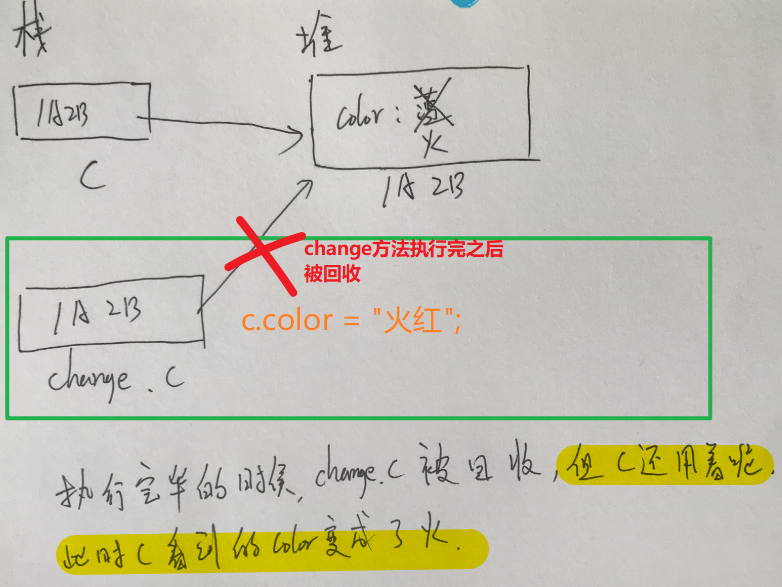 栈 堆
1A2B color: 蓝
火
C 1A2B
change方法执行完之后
被回收
1A2B c.color = "火红";
change.C
执行完毕的时候, change.C 被回收, 但 C 还用着呢.
此时 C 看到的 color 变成了火.